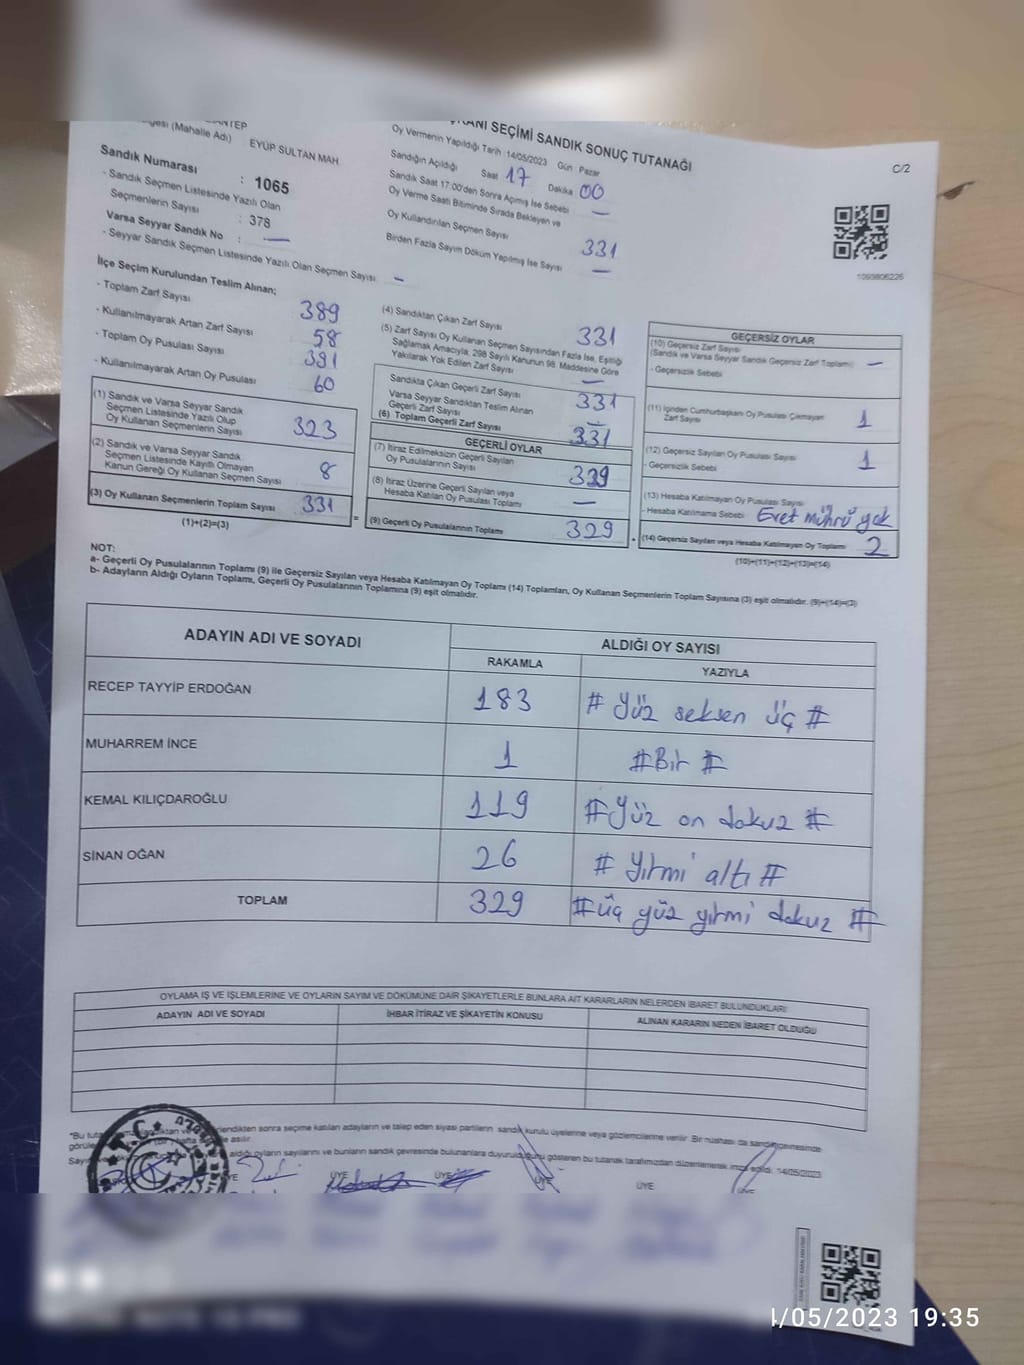 SEÇİMİ SANDIK SONUÇ TUTANAĞI
C/2
(Mahalle Adı) EYÜP SULTAN MAH.
Sandık Numarası : 1065
- Sandık Seçmen Listesinde Yazılı Olan
Seçmenlerin Sayısı : 378
Varsa Seyyar Sandık No : —
- Seyyar Sandık Seçmen Listesinde Yazılı Olan Seçmen Sayısı: -
Oy Vermenin Yapıldığı Tarih :14/05/2023 Gün : Pazar
Sandığın Açıldığı Saat 17 Dakika 00
Sandık Saat 17:00'den Sonra Açımış İse Sebebi —
Oy Verme Saati Bitiminde Sırada Bekleyen ve
Oy Kullandırılan Seçmen Sayısı 331
Birden Fazla Sayım Döküm Yapılmış İse Sayısı —
1099806226
İlçe Seçim Kurulundan Teslim Alınan;
- Toplam Zarf Sayısı 389
- Kullanılmayarak Artan Zarf Sayısı 58
- Toplam Oy Pusulası Sayısı 391
- Kullanılmayarak Artan Oy Pusulası 60
(1) Sandık ve Varsa Seyyar Sandık
Seçmen Listesinde Yazılı Olup
Oy Kullanan Seçmenlerin Sayısı 323
(2) Sandık ve Varsa Seyyar Sandık
Seçmen Listesinde Kayıtlı Olmayan
Kanun Gereği Oy Kullanan Seçmen Sayısı 8
(3) Oy Kullanan Seçmenlerin Toplam Sayısı 331
(1)+(2)=(3)
(4) Sandıktan Çıkan Zarf Sayısı 331
(5) Zarf Sayısı Oy Kullanan Seçmen Sayısından Fazla İse, Eşitliği
Sağlamak Amacıyla; 298 Sayılı Kanunun 98. Maddesine Göre
Yakılarak Yok Edilen Zarf Sayısı —
Sandıkta Çıkan Geçerli Zarf Sayısı 331
Varsa Seyyar Sandıktan Teslim Alınan
Geçerli Zarf Sayısı —
(6) Toplam Geçerli Zarf Sayısı 331
GEÇERLİ OYLAR
(7) İtiraz Edilmeksizin Geçerli Sayılan
Oy Pusulalarının Sayısı 329
(8) İtiraz Üzerine Geçerli Sayılan veya
Hesaba Katılan Oy Pusulası Toplamı —
(9) Geçerli Oy Pusulalarının Toplamı 329
GEÇERSİZ OYLAR
(10) Geçersiz Zarf Sayısı
(Sandık ve Varsa Seyyar Sandık Geçersiz Zarf Toplamı) —
- Geçersizlik Sebebi
(11) İçinden Cumhurbaşkanı Oy Pusulası Çıkmayan
Zarf Sayısı 1
(12) Geçersiz Sayılan Oy Pusulası Sayısı 1
- Geçersizlik Sebebi
(13) Hesaba Katılmayan Oy Pusulası Sayısı
- Hesaba Katılmama Sebebi Evet mührü yok
(14) Geçersiz Sayılan veya Hesaba Katılmayan Oy Toplamı 2
(10)+(11)+(12)+(13)=(14)
NOT:
a- Geçerli Oy Pusulalarının Toplamı (9) ile Geçersiz Sayılan veya Hesaba Katılmayan Oy Toplamı (14) Toplamları, Oy Kullanan Seçmenlerin Toplam Sayısına (3) eşit olmalıdır. (9)+(14)=(3)
b- Adayların Aldığı Oyların Toplamı, Geçerli Oy Pusulalarının Toplamına (9) eşit olmalıdır.
ADAYIN ADI VE SOYADI ALDIĞI OY SAYISI
RAKAMLA YAZIYLA
RECEP TAYYİP ERDOĞAN 183 # Yüz seksen üç #
MUHARREM İNCE 1 # Bir #
KEMAL KILIÇDAROĞLU 119 # Yüz on dokuz #
SİNAN OĞAN 26 # Yirmi altı #
TOPLAM 329 # üç yüz yirmi dokuz #
OYLAMA İŞ VE İŞLEMLERİNE VE OYLARIN SAYIM VE DÖKÜMÜNE DAİR ŞİKAYETLERLE BUNLARA AİT KARARLARIN NELERDEN İBARET BULUNDUKLARI
ADAYIN ADI VE SOYADI İHBAR İTİRAZ VE ŞİKAYETİN KONUSU ALINAN KARARIN NEDEN İBARET OLDUĞU
sonra seçime katılan adayların ve talep eden siyasi partilerin sandık kurulu üyelerine veya gözlemcilerine verilir. Bir nüshası da sandık çevresinde
hafta asılır.
aldığı oyların sayılarını ve bunların sandık çevresinde bulunanlara duyurulduğunu gösteren bu tutanak tarafımızdan düzenlenerek imza edildi. 14/05/2023
ÜYE ÜYE ÜYE ÜYE ÜYE
/05/2023 19:35